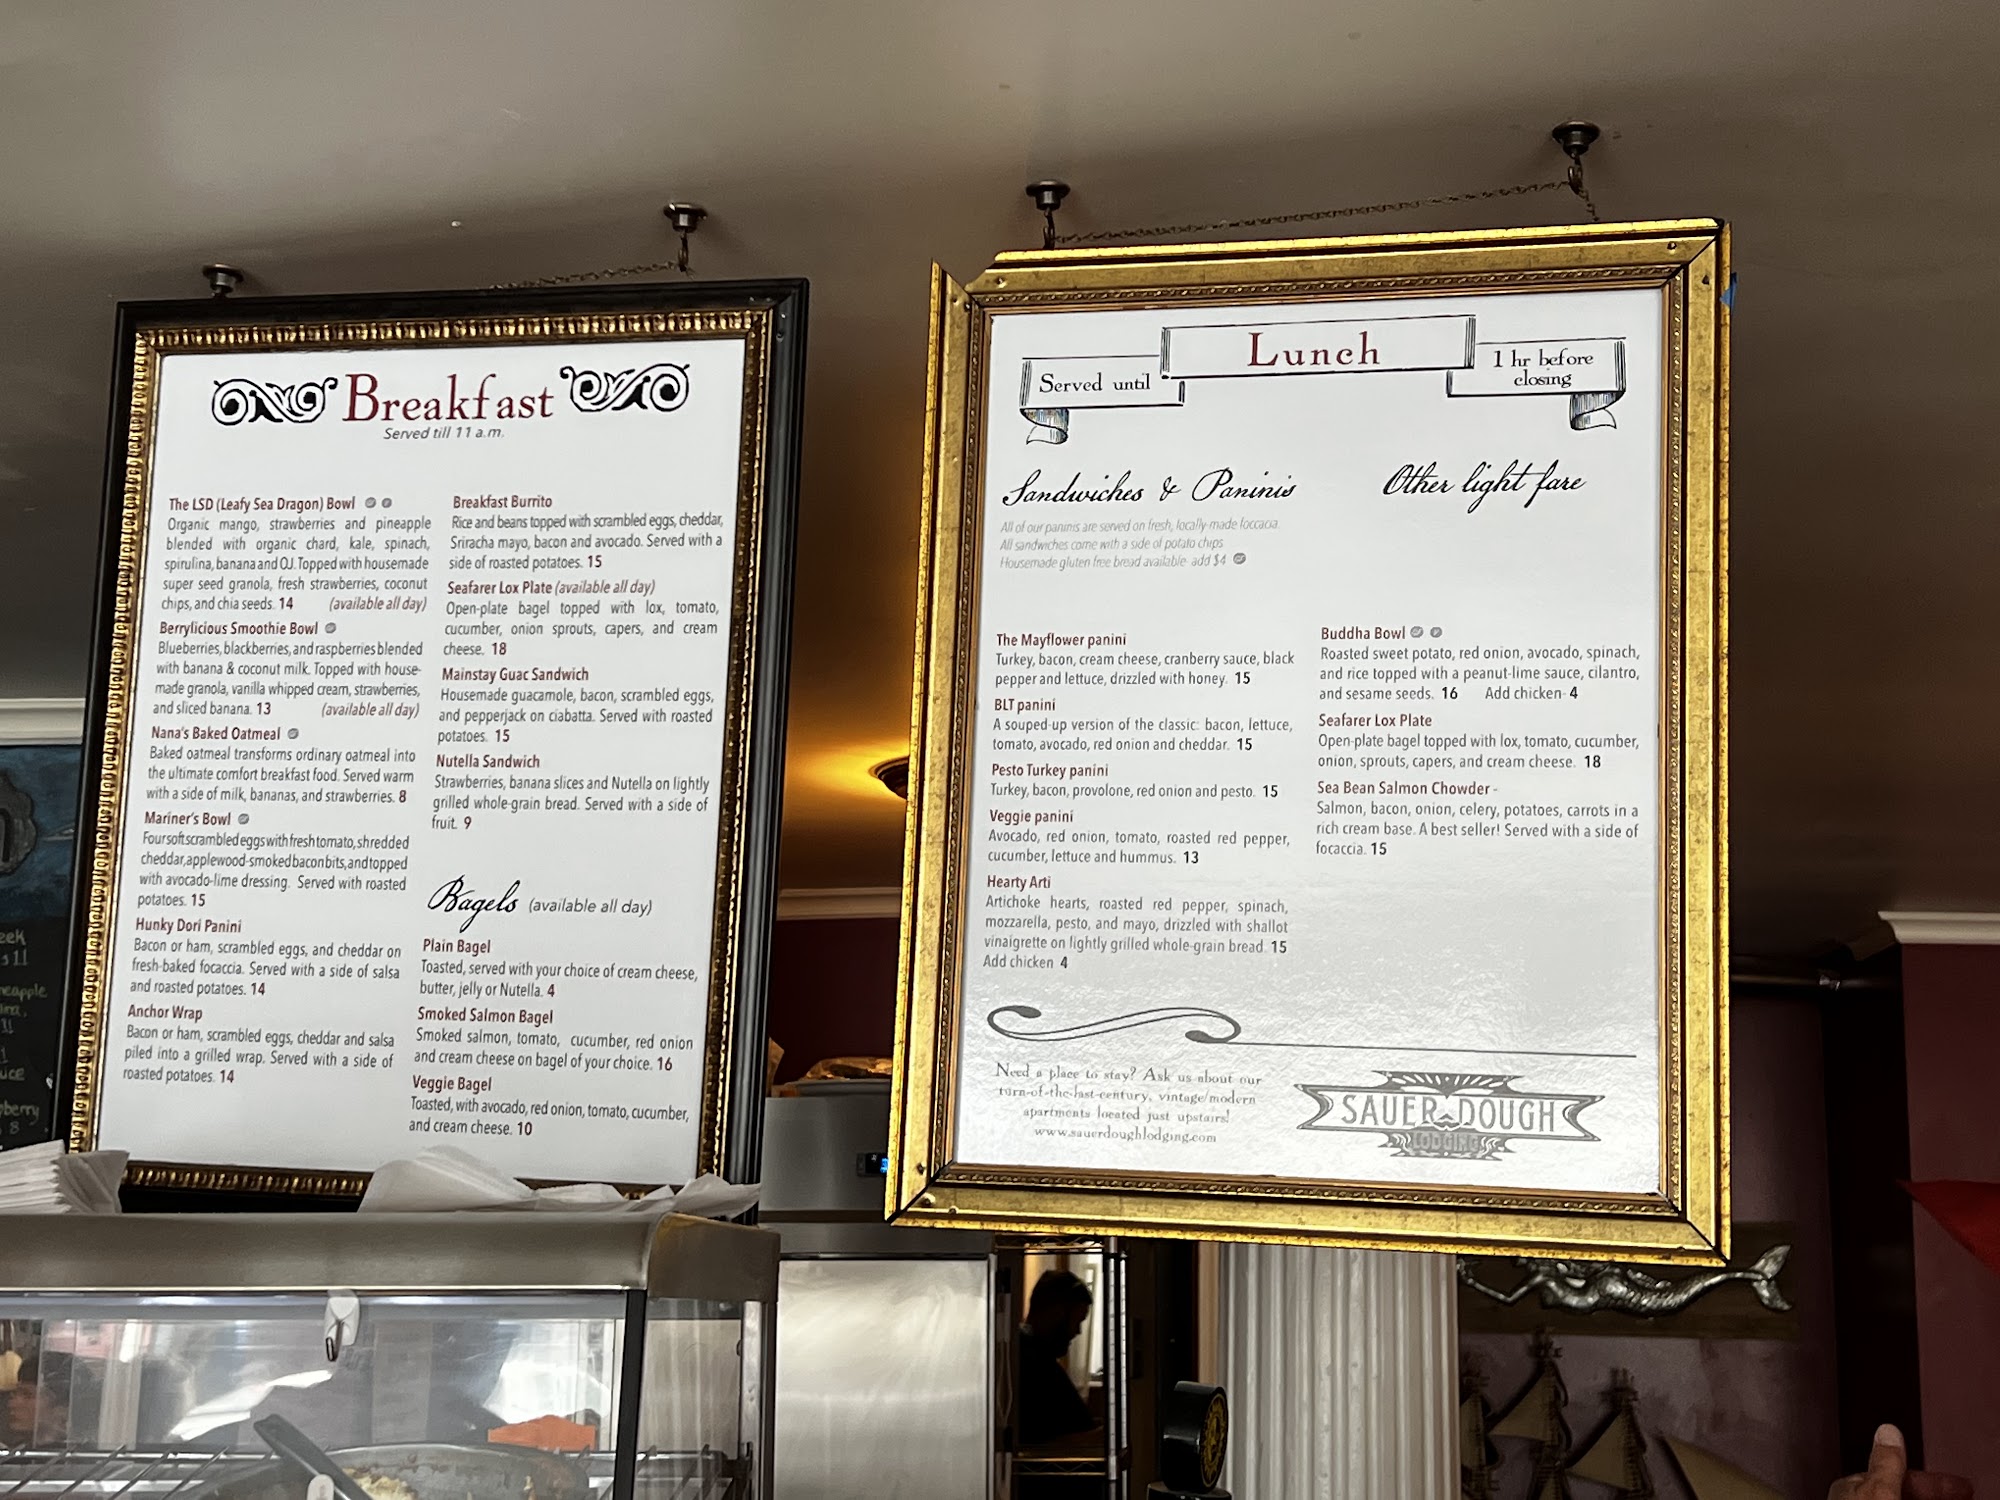 Breakfast
Served till 11 a.m.
The LSD (Leafy Sea Dragon) Bowl
Organic mango, strawberries and pineapple
blended with organic chard, kale, spinach,
spirulina, banana and OJ. Topped with housemade
super seed granola, fresh strawberries, coconut
chips, and chia seeds. 14 (available all day)
Berrylicious Smoothie Bowl
Blueberries, blackberries, and raspberries blended
with banana & coconut milk. Topped with house-
made granola, vanilla whipped cream, strawberries,
and sliced banana. 13 (available all day)
Nana's Baked Oatmeal
Baked oatmeal transforms ordinary oatmeal into
the ultimate comfort breakfast food. Served warm
with a side of milk, bananas, and strawberries. 8
Mariner's Bowl
Four soft scrambled eggs with fresh tomato, shredded
cheddar, applewood-smoked bacon bits, and topped
with avocado-lime dressing. Served with roasted
potatoes. 15
Hunky Dori Panini
Bacon or ham, scrambled eggs, and cheddar on
fresh-baked focaccia. Served with a side of salsa
and roasted potatoes. 14
Anchor Wrap
Bacon or ham, scrambled eggs, cheddar and salsa
piled into a grilled wrap. Served with a side of
roasted potatoes. 14
Breakfast Burrito
Rice and beans topped with scrambled eggs, cheddar,
Sriracha mayo, bacon and avocado. Served with a
side of roasted potatoes. 15
Seafarer Lox Plate (available all day)
Open-plate bagel topped with lox, tomato,
cucumber, onion sprouts, capers, and cream
cheese. 18
Mainstay Guac Sandwich
Housemade guacamole, bacon, scrambled eggs,
and pepperjack on ciabatta. Served with roasted
potatoes. 15
Nutella Sandwich
Strawberries, banana slices and Nutella on lightly
grilled whole-grain bread. Served with a side of
fruit. 9
Bagels (available all day)
Plain Bagel
Toasted, served with your choice of cream cheese,
butter, jelly or Nutella. 4
Smoked Salmon Bagel
Smoked salmon, tomato, cucumber, red onion
and cream cheese on bagel of your choice. 16
Veggie Bagel
Toasted, with avocado, red onion, tomato, cucumber,
and cream cheese. 10
Served until
Lunch
1 hr before
closing
Sandwiches & Paninis
All of our paninis are served on fresh, locally-made foccacia.
All sandwiches come with a side of potato chips
Housemade gluten free bread available- add $4
The Mayflower panini
Turkey, bacon, cream cheese, cranberry sauce, black
pepper and lettuce, drizzled with honey. 15
BLT panini
A souped-up version of the classic: bacon, lettuce,
tomato, avocado, red onion and cheddar. 15
Pesto Turkey panini
Turkey, bacon, provolone, red onion and pesto. 15
Veggie panini
Avocado, red onion, tomato, roasted red pepper,
cucumber, lettuce and hummus. 13
Hearty Arti
Artichoke hearts, roasted red pepper, spinach,
mozzarella, pesto, and mayo, drizzled with shallot
vinaigrette on lightly grilled whole-grain bread. 15
Add chicken 4
Other light fare
Buddha Bowl
Roasted sweet potato, red onion, avocado, spinach,
and rice topped with a peanut-lime sauce, cilantro,
and sesame seeds. 16 Add chicken- 4
Seafarer Lox Plate
Open-plate bagel topped with lox, tomato, cucumber,
onion, sprouts, capers, and cream cheese. 18
Sea Bean Salmon Chowder -
Salmon, bacon, onion, celery, potatoes, carrots in a
rich cream base. A best seller! Served with a side of
focaccia. 15
Need a place to stay? Ask us about our
turn-of-the-last-century, vintage/modern
apartments located just upstairs!
www.sauerdoughlodging.com
SAUER DOUGH
LODGING